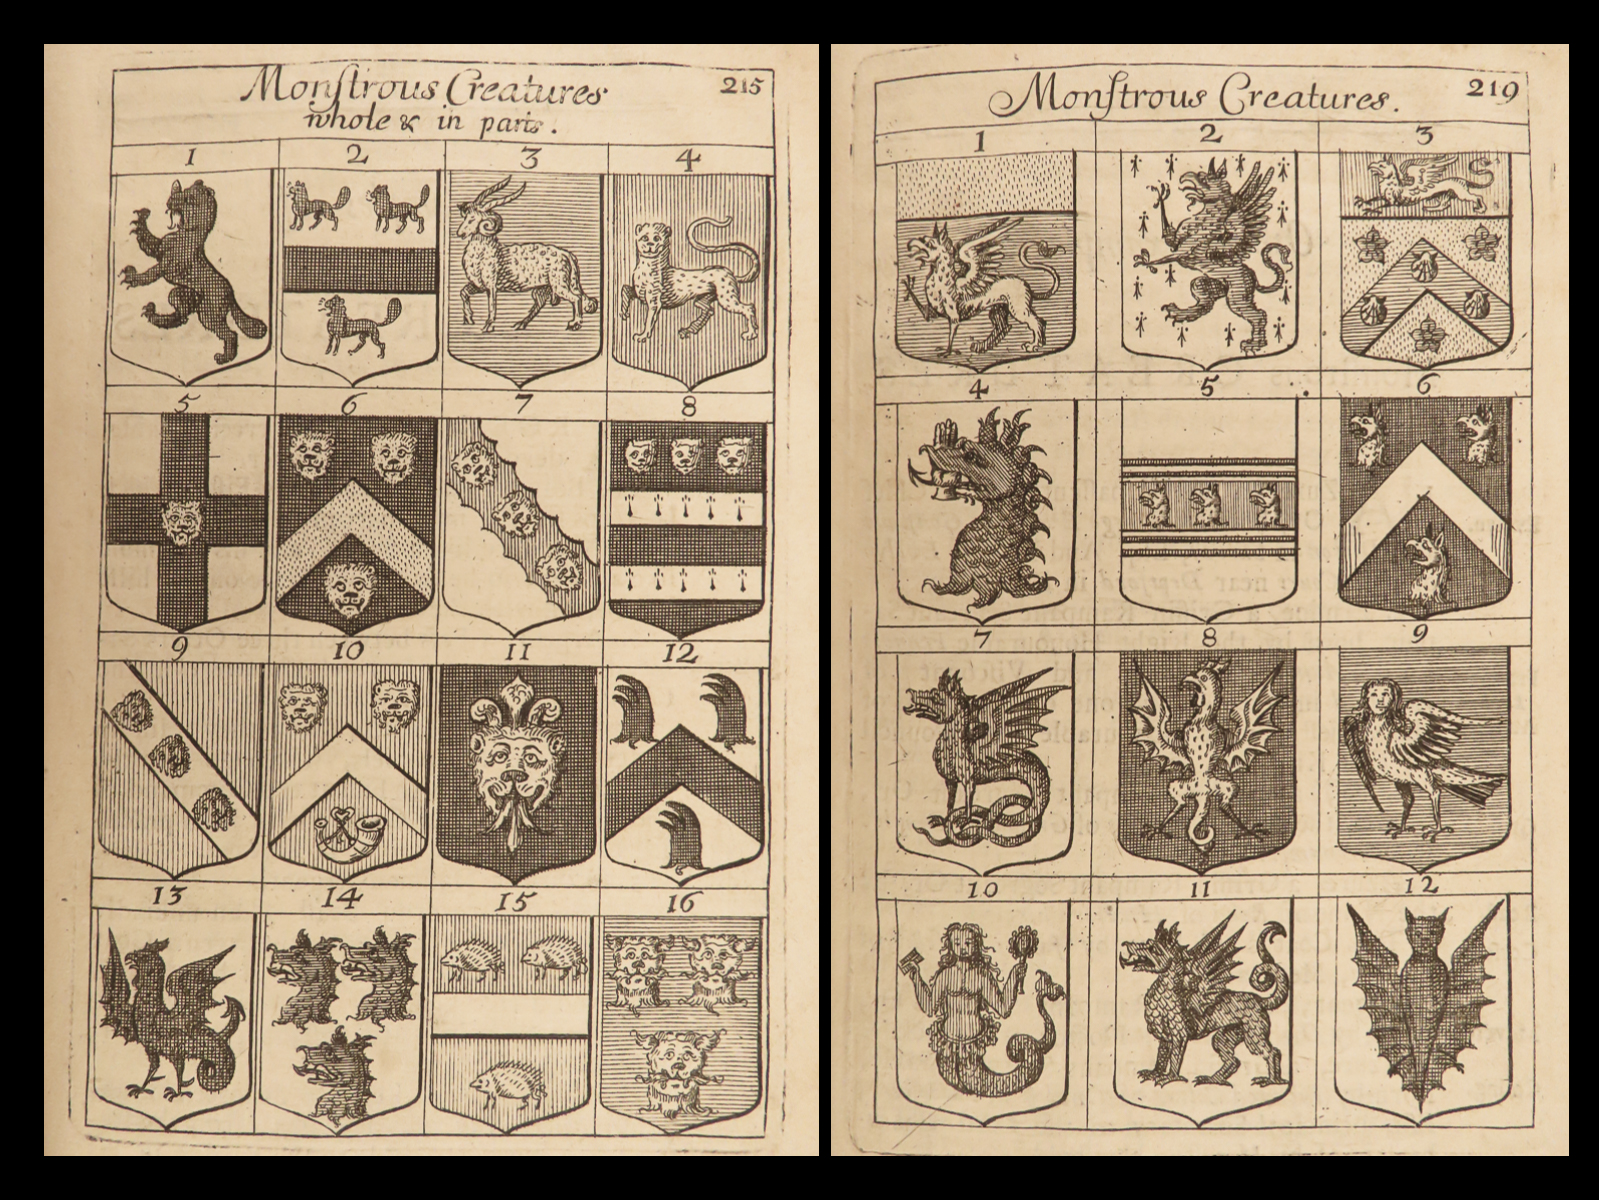 Monſtrous Creatures
whole & in parts.
215
1 2 3 4
5 6 7 8
9 10 11 12
13 14 15 16
Monſtrous Creatures.
219
1 2 3
4 5 6
7 8 9
10 11 12